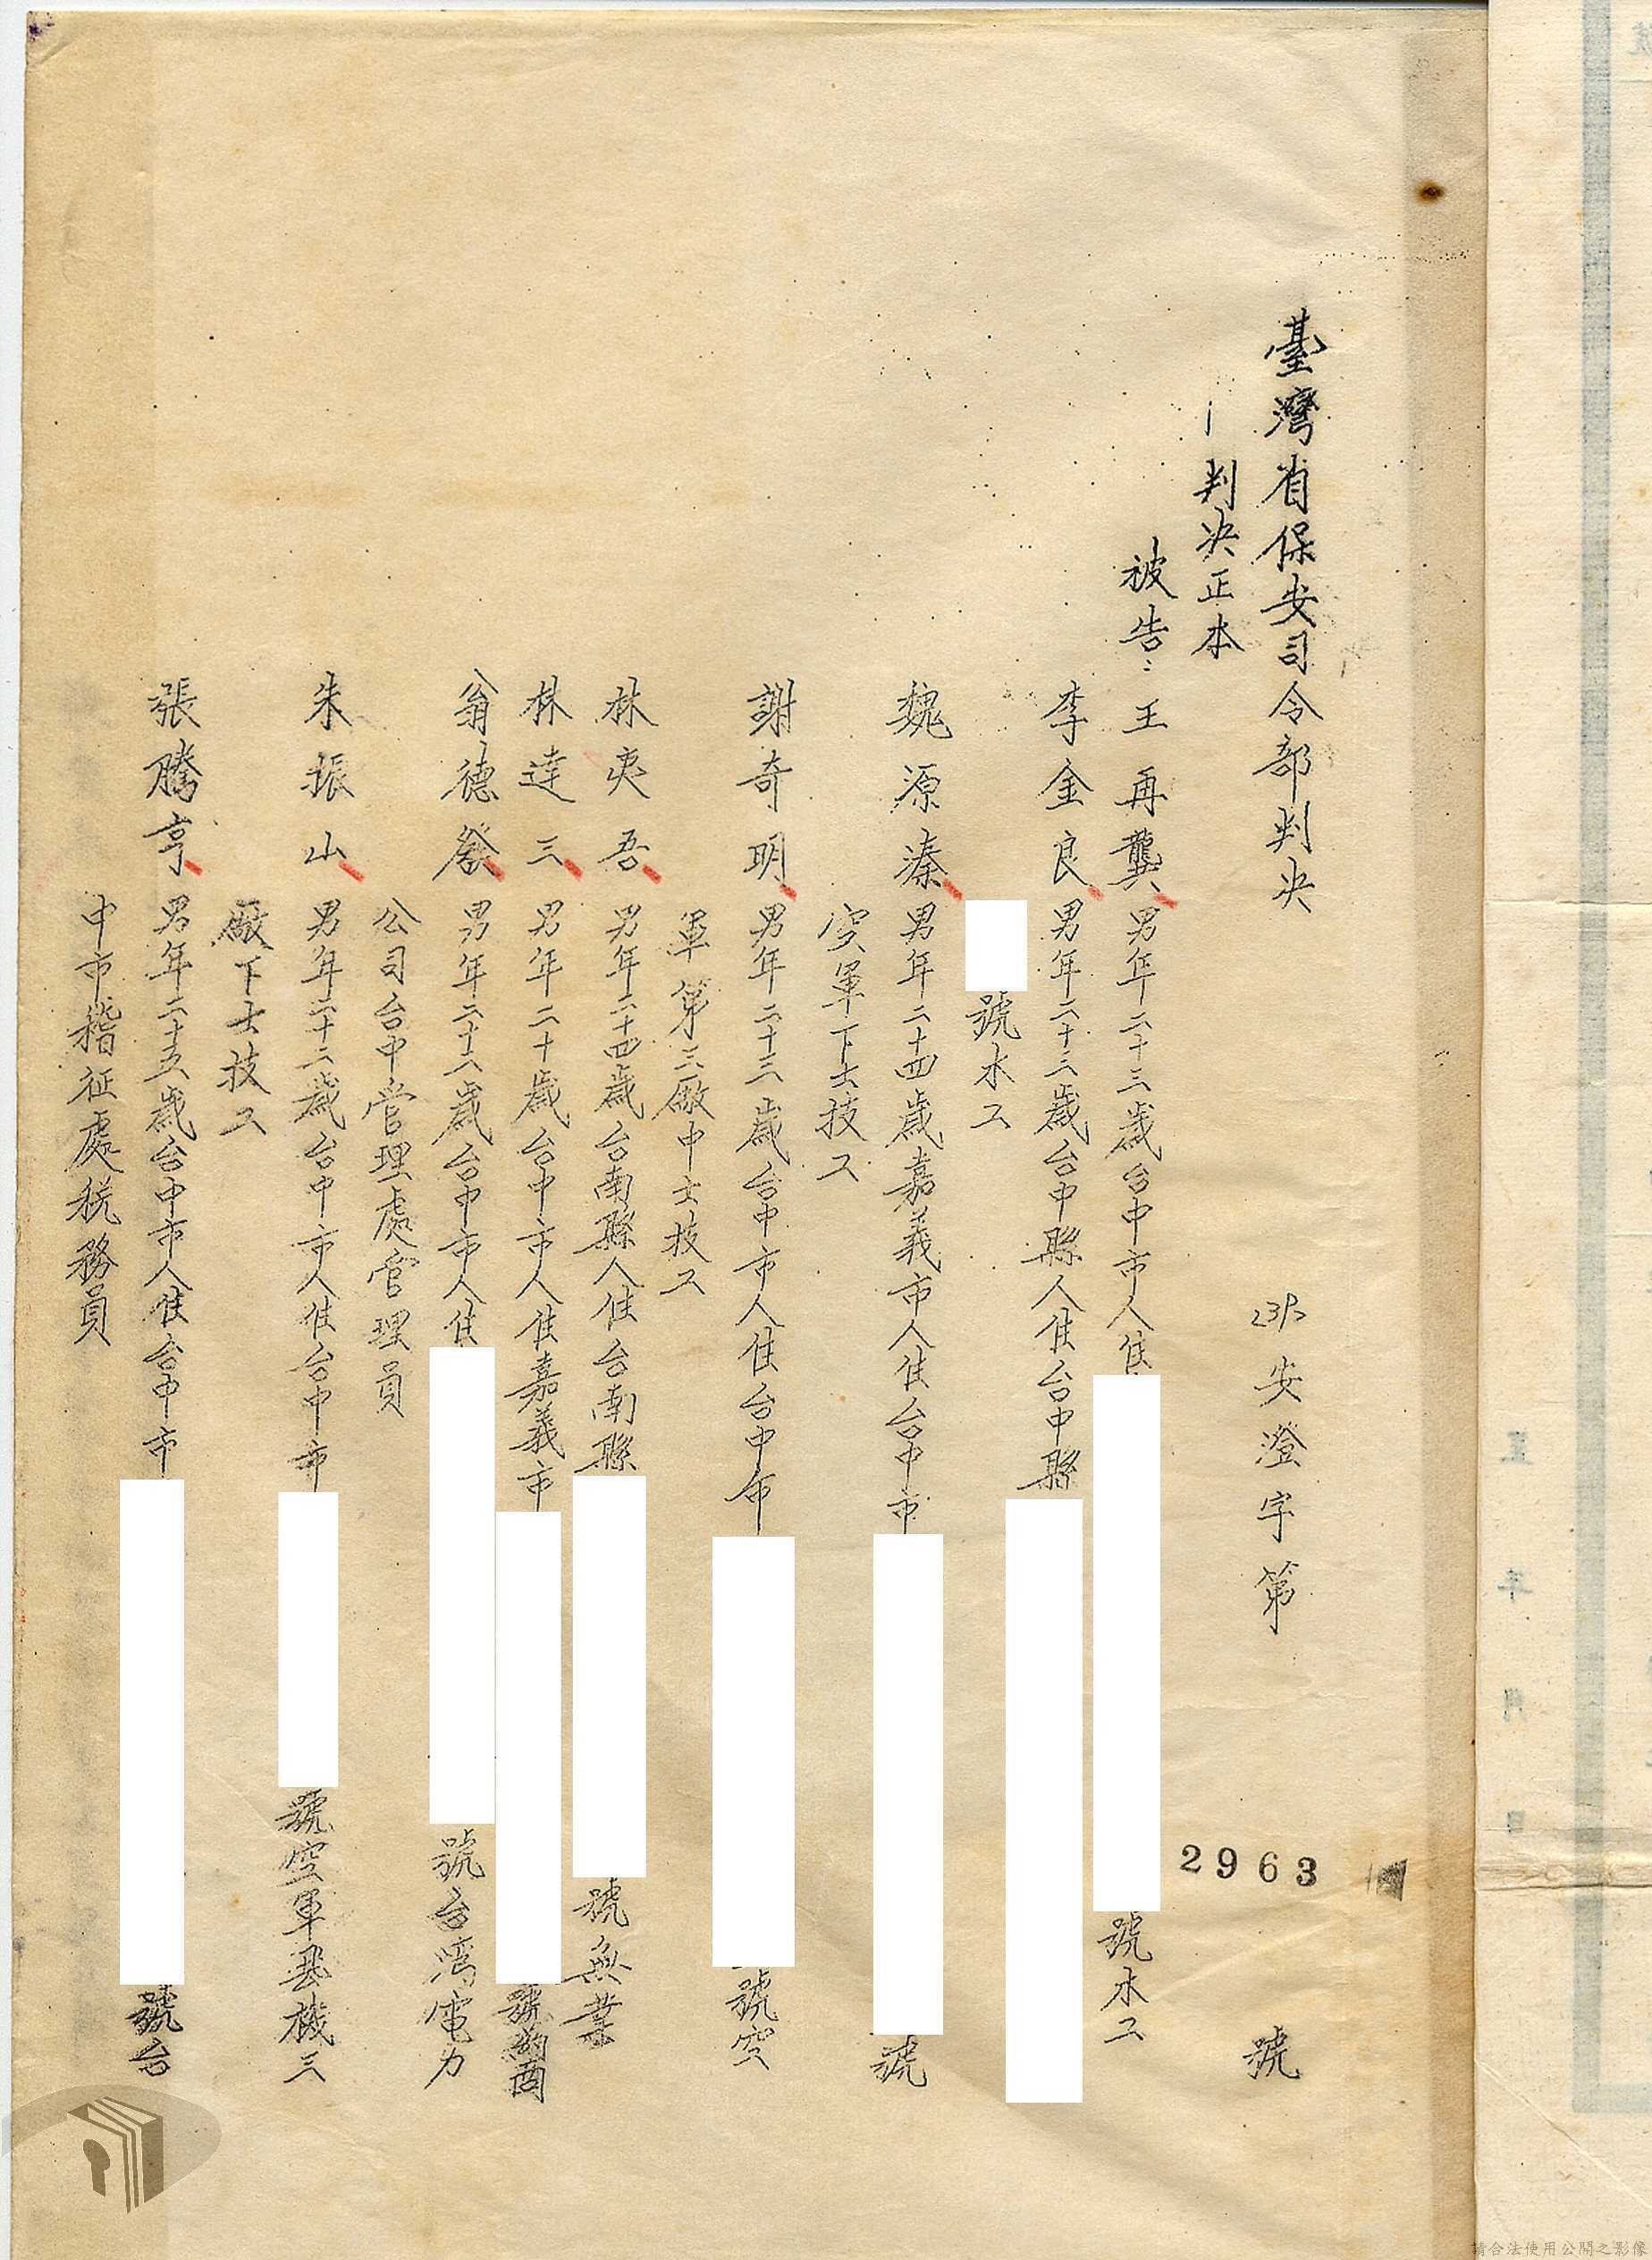 臺灣省保安司令部判決
安澄字第
2963
號
判決正本
被告：王再龔 男年二十三歲台中市人住
號水工
李金良 男年二十三歲台中縣人住台中縣
號水工
魏源溱 男年二十四歲嘉義市人住台中市
號
空軍下士技工
謝奇明 男年二十三歲台中市人住台中市
號空
軍第三廠中士技工
林夷吾 男年二十四歲台南縣人住台南縣
號無業
林達三 男年二十歲台中市人住嘉義市
號商
翁德發 男年二十六歲台中市人住
號台灣電力
公司台中管理處管理員
朱振山 男年二十二歲台中市人住台中市
號空軍飛機三
廠下士技工
張騰亨 男年二十五歲台中市人住台中市
號台
中市稽征處稅務員
請合法使用公開之影像